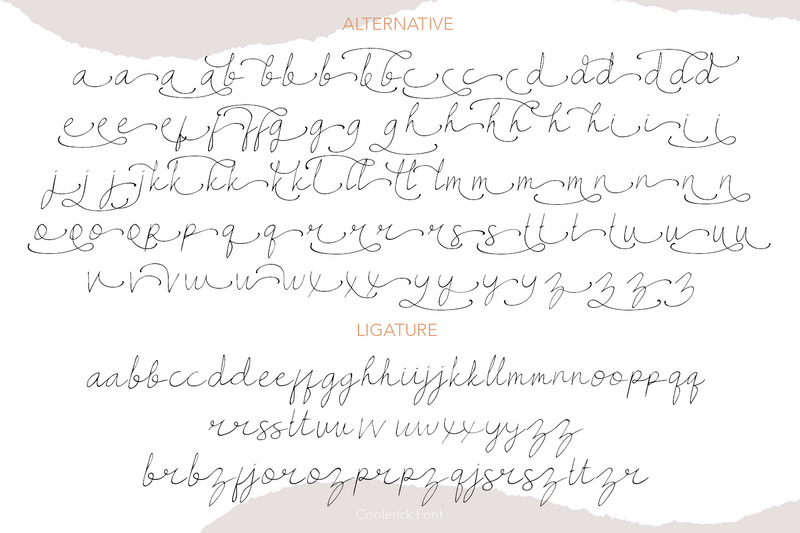 ALTERNATIVE
a a a a b b b b b b c c c c d d d d d d
e e e e f f f f g g g g h h h h h h i i i i i
j j j j k k k k k k l l l l l l m m m m n n n n n
o o o o p p p q q r r r r s s t t t t u u u u
v v v w w w w x x x y y y y z z z z
LIGATURE
aabbccddeeffgghhiijjkkllmmnnooppqq
rrssttuuvvwwxxyyzz
brbzfjorozprpzqjsrszttzr
Coolerick Font